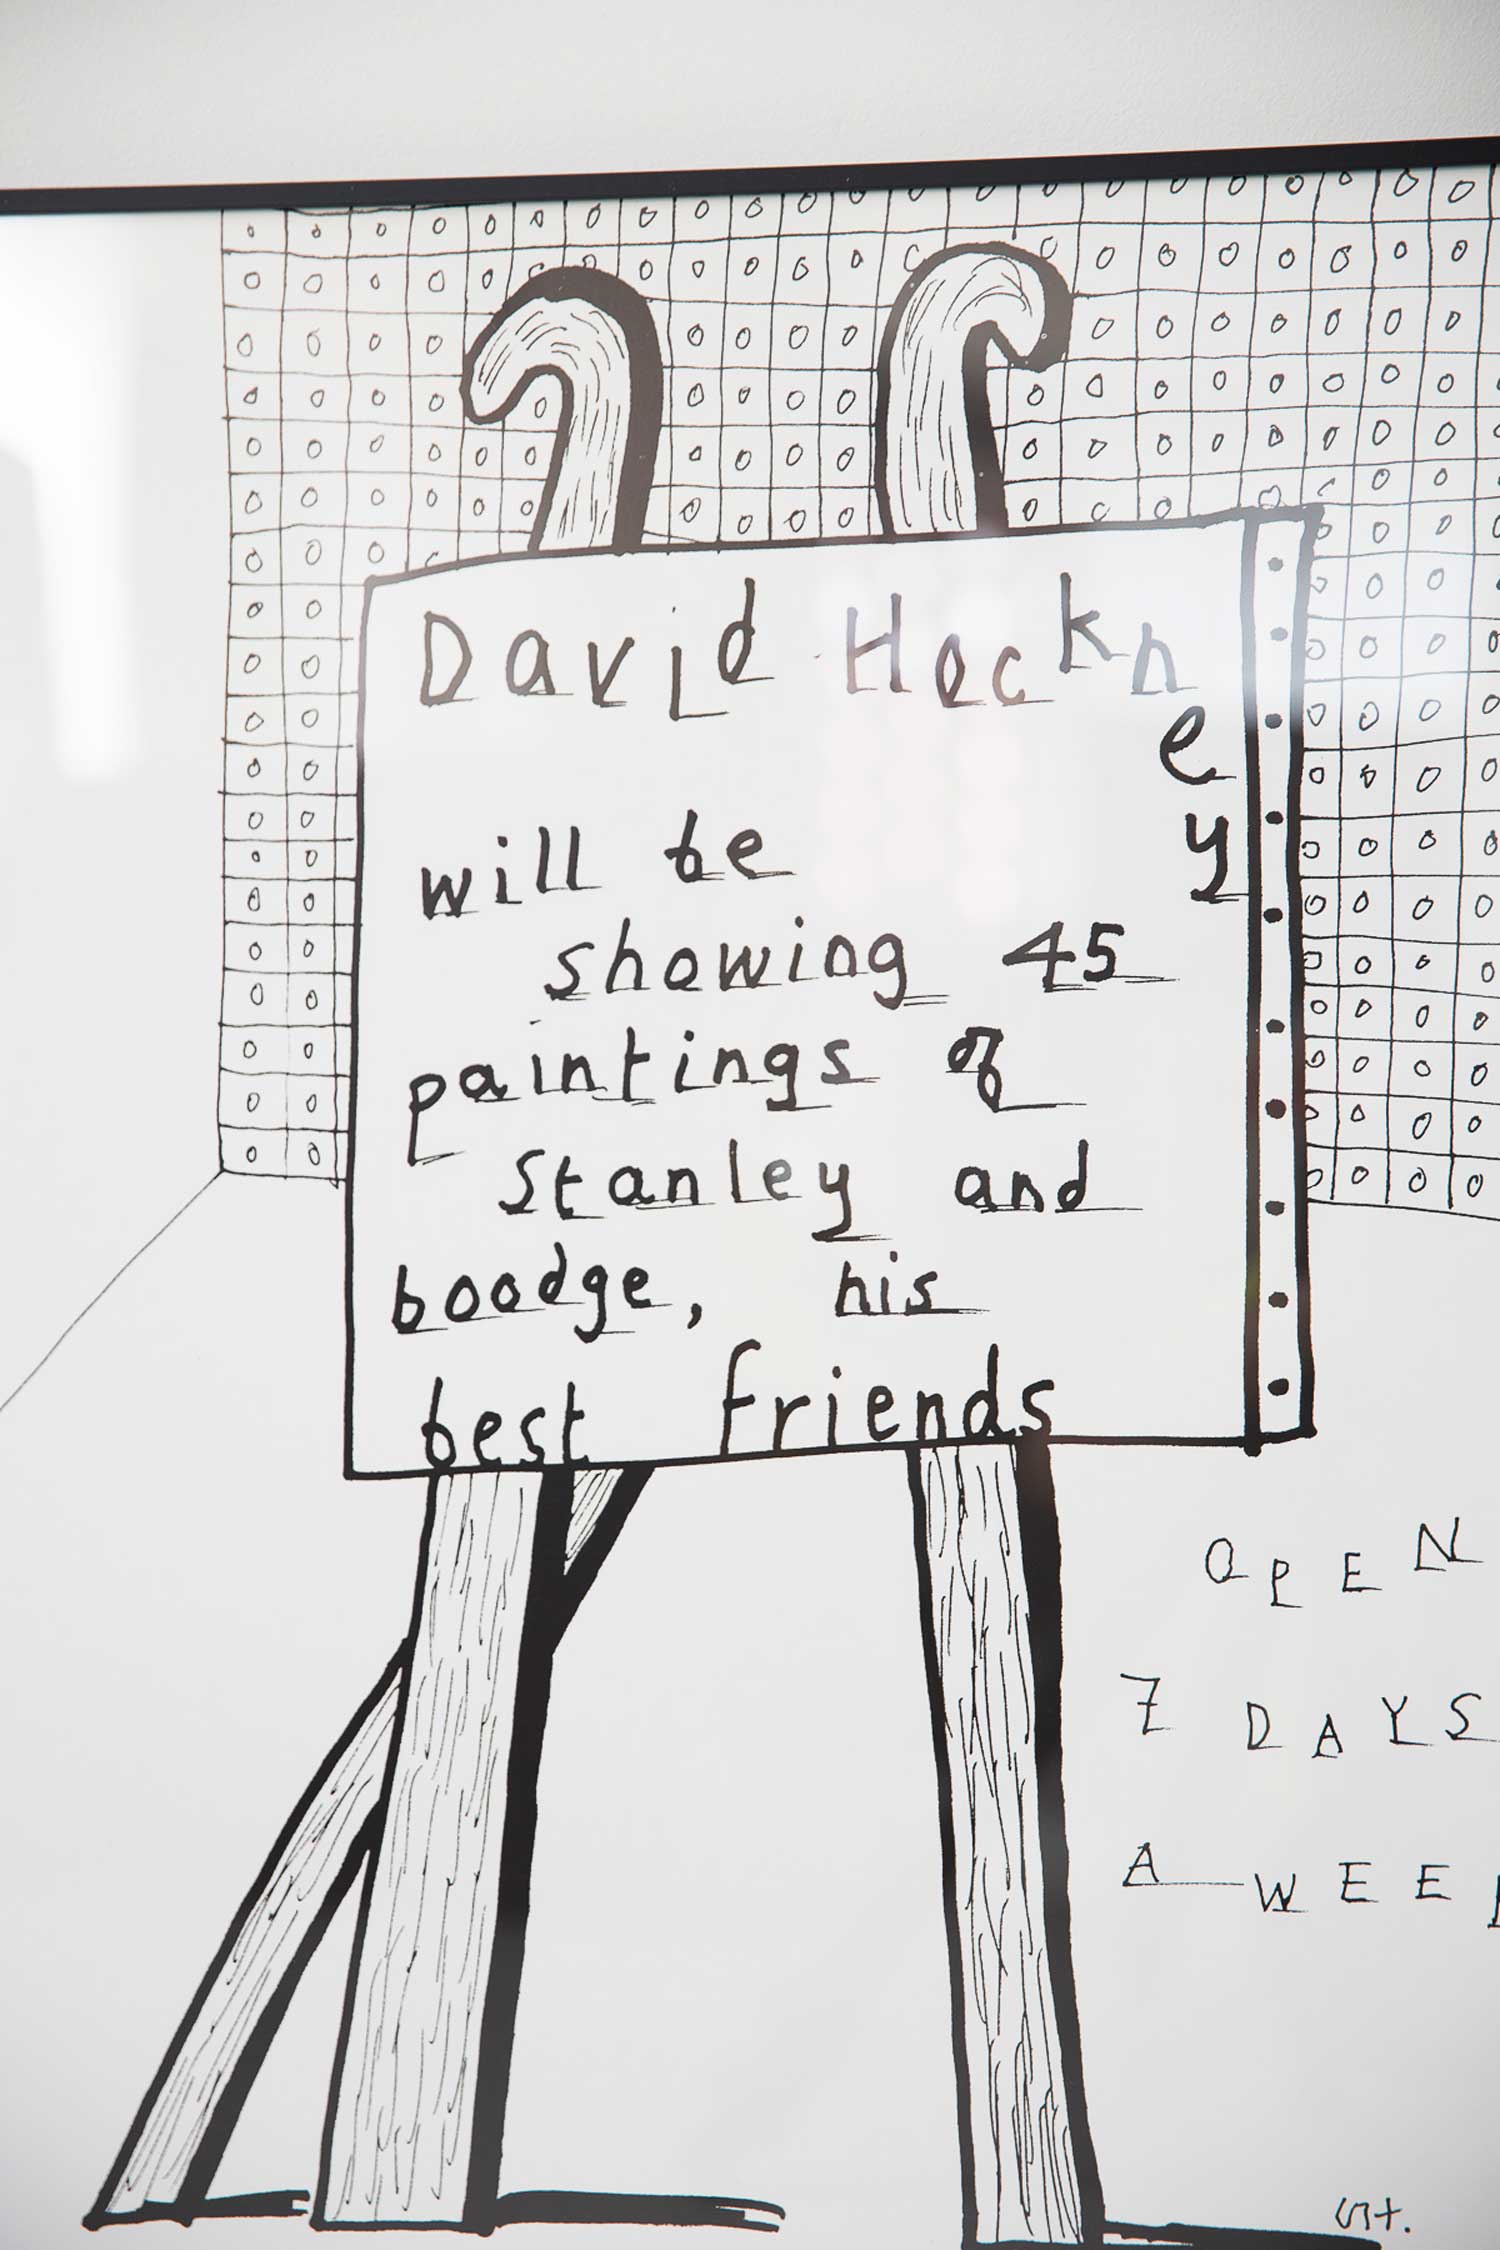 David Hockney
will be
showing 45
paintings of
Stanley and
boodge, his
best friends
OPEN
7 DAYS
A WEE